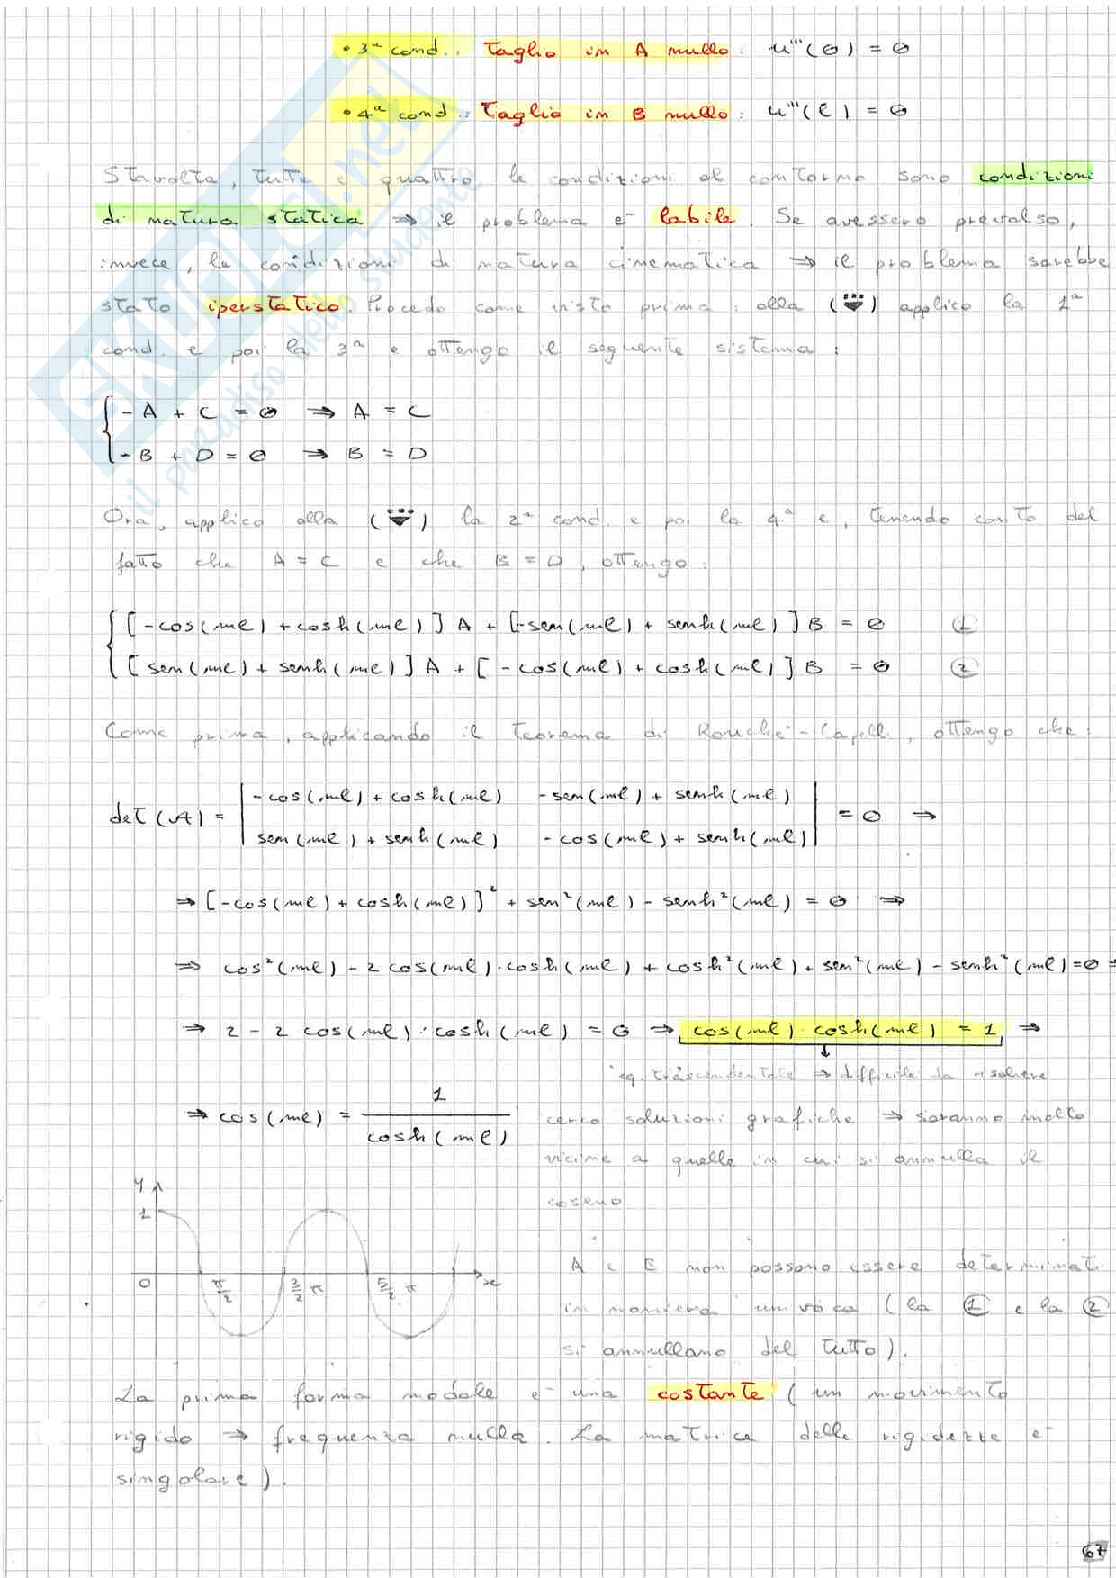 • 3ª cond.: Taglio in A nullo: u'''(0) = 0
• 4ª cond.: Taglio in B nullo: u'''(l) = 0
Stavolta, tutte e quattro le condizioni al contorno sono condizioni
di natura statica ⇒ il problema è labile. Se avessero prevalso,
invece, le condizioni di natura cinematica ⇒ il problema sarebbe
stato iperstatico. Procedo come visto prima: alla ( ) applico la 1ª
cond. e poi la 3ª e ottengo il seguente sistema:
{ -A + C = 0 ⇒ A = C
-B + D = 0 ⇒ B = D
Ora, applico alla ( ) la 2ª cond. e poi la 4ª e, tenendo conto del
fatto che A = C e che B = D, ottengo:
{ [-cos(ml) + cosh(ml)] A + [-sen(ml) + senh(ml)] B = 0 ①
[sen(ml) + senh(ml)] A + [-cos(ml) + cosh(ml)] B = 0 ②
Come prima, applicando il teorema di Rouché-Capelli, ottengo che:
det(A) = | -cos(ml) + cosh(ml) -sen(ml) + senh(ml) |
| sen(ml) + senh(ml) -cos(ml) + senh(ml) | = 0 ⇒
⇒ [-cos(ml) + cosh(ml)]² + sen²(ml) - senh²(ml) = 0 ⇒
⇒ cos²(ml) - 2 cos(ml)·cosh(ml) + cosh²(ml) + sen²(ml) - senh²(ml) = 0 ⇒
⇒ 2 - 2 cos(ml)·cosh(ml) = 0 ⇒ cos(ml)·cosh(ml) = 1 ⇒
eq. trascendentale ⇒ difficile da risolvere
⇒ cos(ml) = 1 / cosh(ml)
cerco soluzioni grafiche ⇒ saranno molto
vicine a quelle in cui si annulla il
coseno
y
1
0 π/2 3/2 π 5/2 π x
A e B non possono essere determinati
in maniera univoca (la ① e la ②
si annullano del tutto).
La prima forma modale è una costante (un movimento
rigido ⇒ frequenza nulla. La matrice delle rigidezze è
singolare).
67
SKUOLA.net
il paradiso dello studente